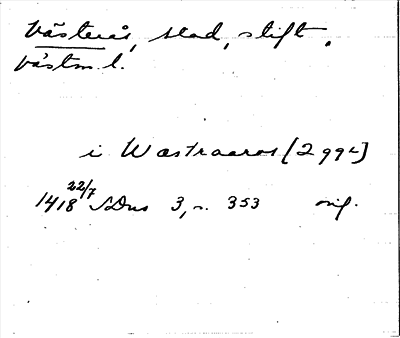 Västerås, stad, stift,
Västm. l.
i Wæstraaros [299c]
1418 22/7 SDns 3, s. 353 orig.